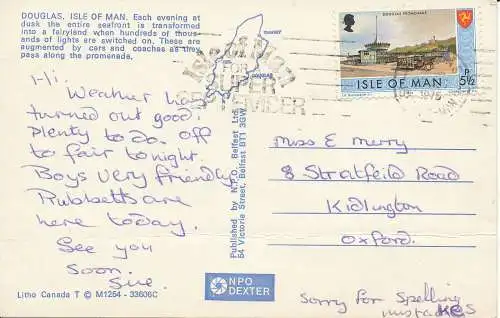 DOUGLAS, ISLE OF MAN. Each evening at
dusk the entire seafront is transformed
into a fairyland when hundreds of thous-
ands of lights are switched on. These are
augmented by cars and coaches as they
pass along the promenade.
Hi.
Weather has
turned out good.
Plenty to do. off
to fair tonight.
Boys very friendly
Rubbetts are
here today.
See you
soon.
Sue.
Litho Canada T © M1254 - 33606C
Published by N.P.O. Belfast Ltd.
64 Victoria Street, Belfast BT1 3GW
NPO
DEXTER
RAMSEY
DOUGLAS
Isle of Man
SEPTEMBER
1975
DOUGLAS PROMENADE
ISLE OF MAN
P
5½
Miss E Merry
8 Stratfeild Road
Kidlington
Oxford.
Sorry for Spelling
mistackes